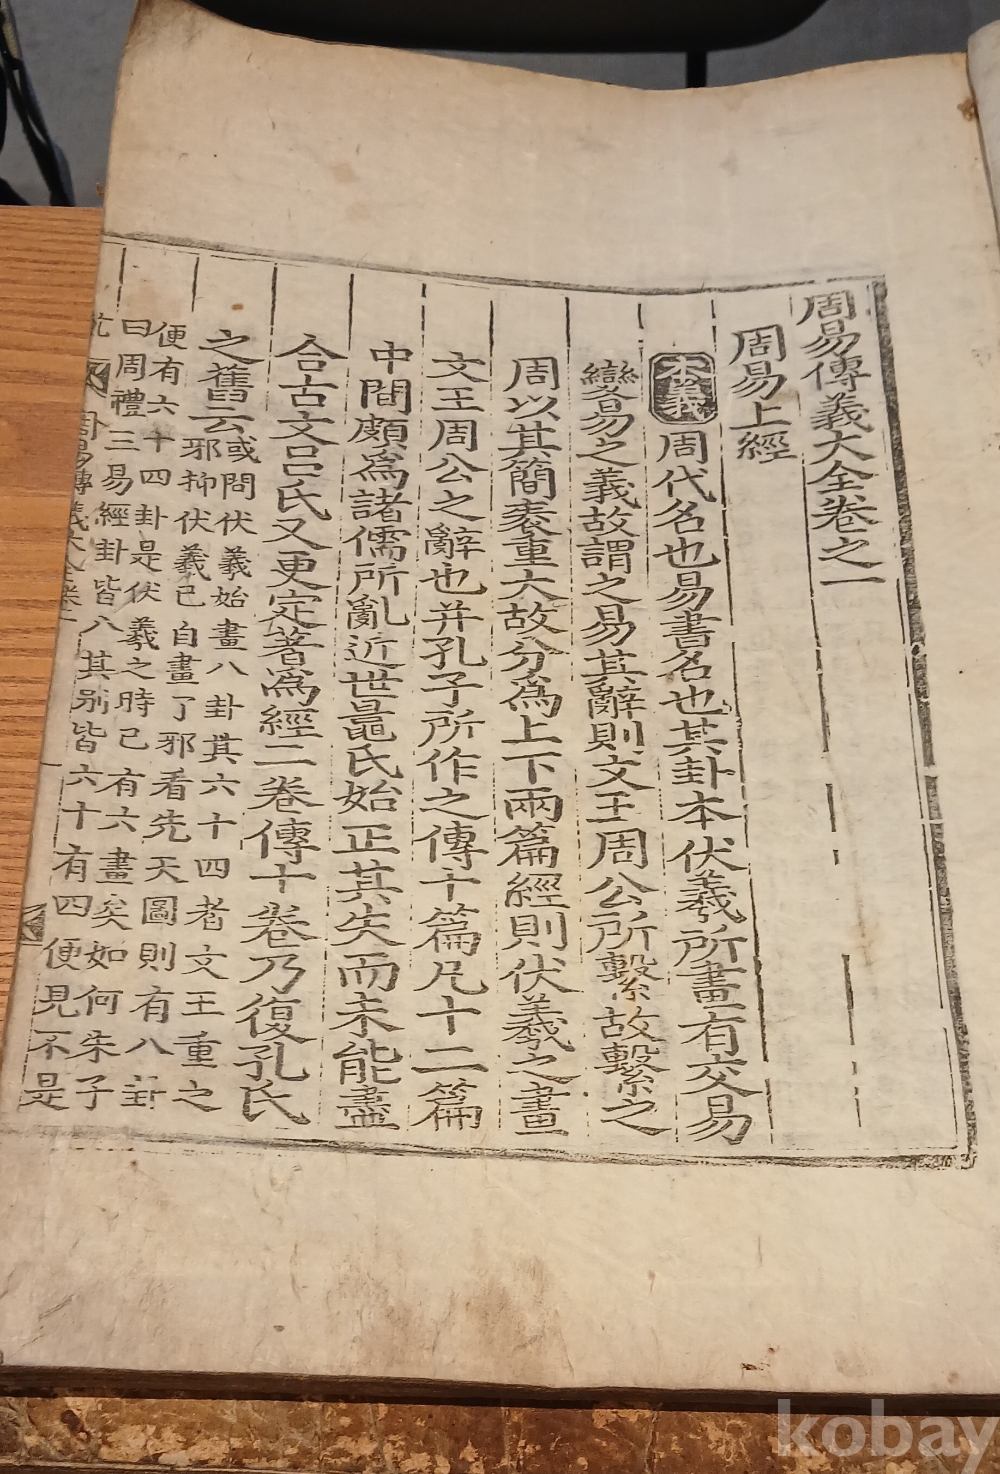 周易傳義大全卷之一
周易上經
本義周代名也易書名也其卦本伏羲所畫有交易
變易之義故謂之易其辭則文王周公所繫故繫之
周以其簡袠重大故分為上下兩篇經則伏羲之畫
文王周公之辭也并孔子所作之傳十篇凡十二篇
中間頗為諸儒所亂近世鼂氏始正其失而未能盡
合古文呂氏又更定著為經二卷傳十卷乃復孔氏
之舊云
或問伏羲始畫八卦其六十四者文王重之
邪抑伏羲已自畫了邪看先天圖則有八卦
便有六十四卦是伏羲之時已有六畫矣如何朱子
曰周禮三易經卦皆八其別皆六十有四便見不是
kobay